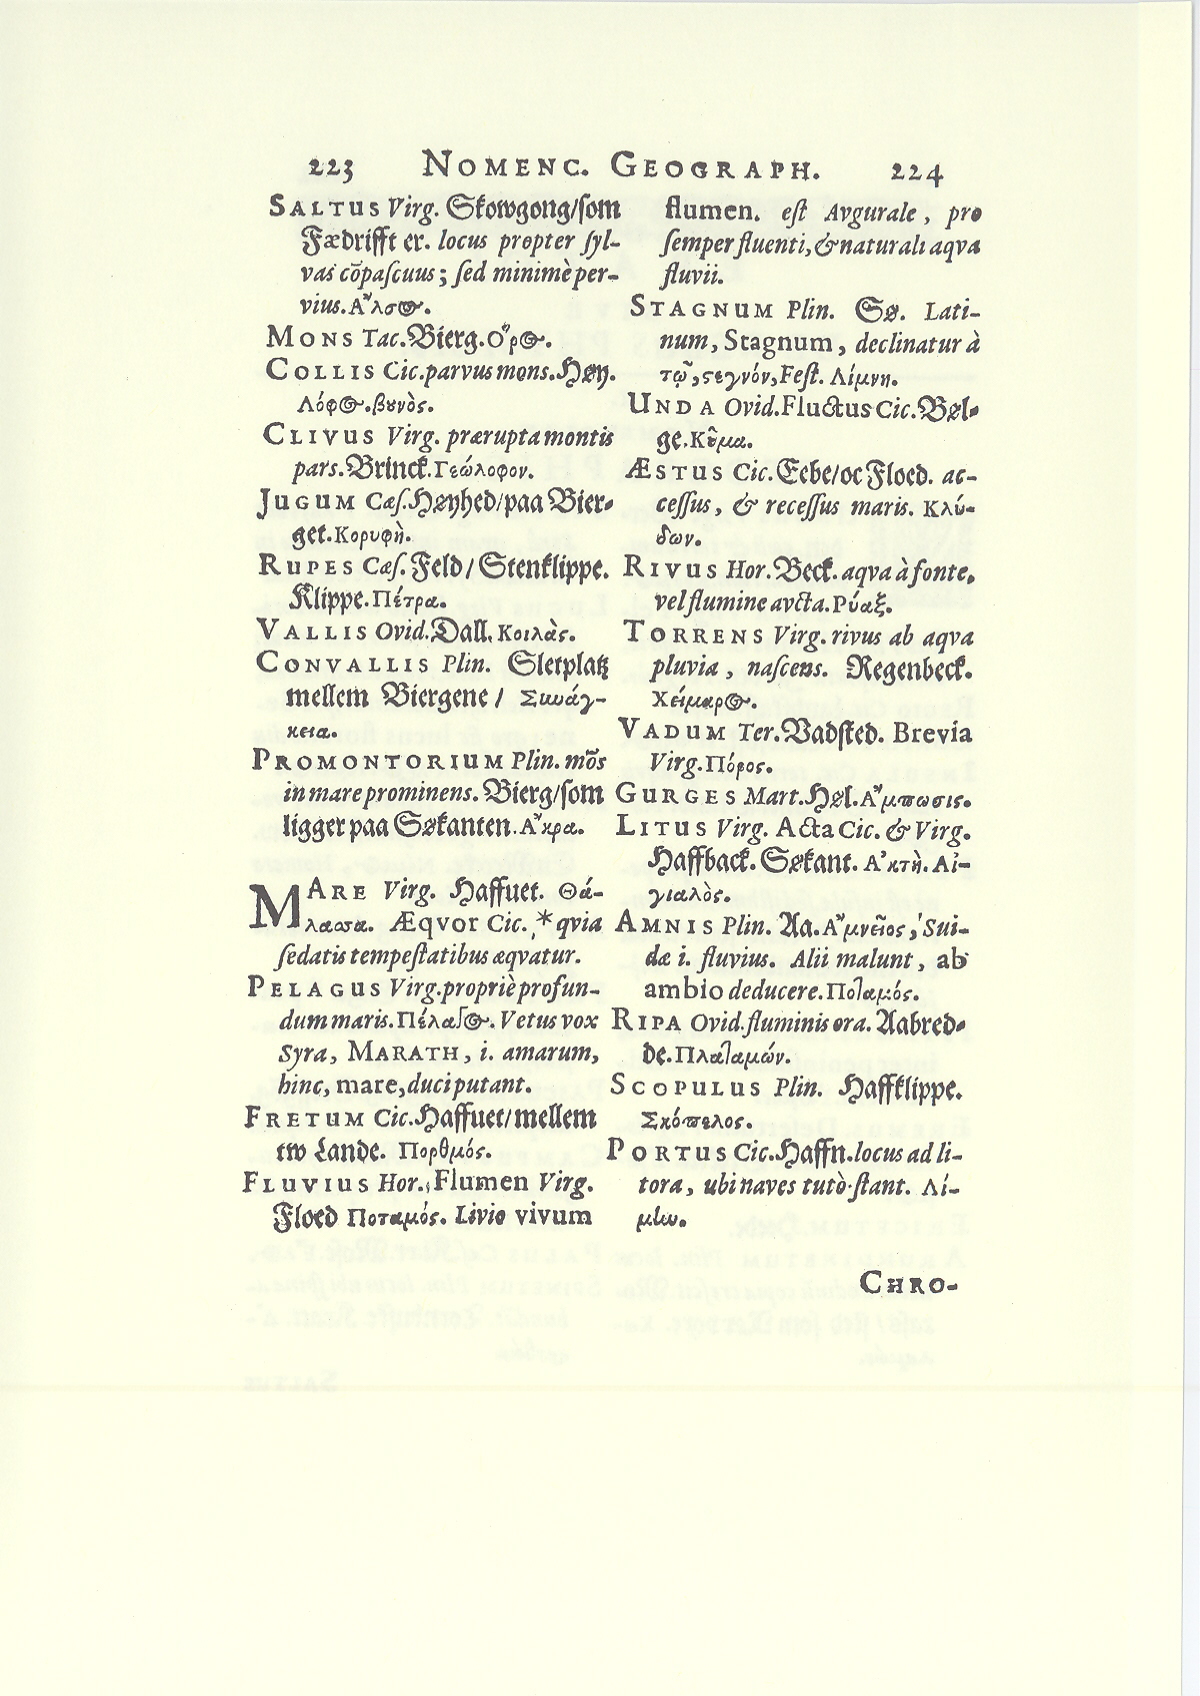 223 NOMENC. GEOGRAPH. 224
SALTUS Virg. Skowgong/som
Fædrifft er. locus propter syl-
vas cōpascuus; sed minimè per-
vius. Ἄλσος.
MONS Tac. Bierg. Ὄρος.
COLLIS Cic. parvus mons. Høy.
Λόφος. βυνὸς.
CLIVUS Virg. prærupta montis
pars. Brinck. Γεώλοφον.
JUGUM Cæs. Høyhed/paa Bier-
get. Κορυφὴ.
RUPES Cæs. Feld/Stenklippe.
Klippe. Πέτρα.
VALLIS Ovid. Dall. Κοιλὰς.
CONVALLIS Plin. Sletplatz
mellem Biergene/ Συνάγ-
κεια.
PROMONTORIUM Plin. mōs
in mare prominens. Bierg/som
ligger paa Søkanten. Ἄκρα.
MARE Virg. Haffuet. Θά-
λασσα. Æqvor Cic. * qvia
sedatis tempestatibus æqvatur.
PELAGUS Virg. propriè profun-
dum maris. Πέλαγος. Vetus vox
Syra, MARATH, i. amarum,
hinc, mare, duci putant.
FRETUM Cic. Haffuet/mellem
tw Lande. Πορθμός.
FLUVIUS Hor. Flumen Virg.
Floed Ποταμός. Livio vivum
flumen. est Avgurale, pro
semper fluenti, & naturali aqva
fluvii.
STAGNUM Plin. Sø. Lati-
num, Stagnum, declinatur à
τῷ, ςεγνόν, Fest. Λίμνη.
UNDA Ovid. Fluctus Cic. Bøl-
ge. Κῦμα.
ÆSTUS Cic. Eebe/oc Floed. ac-
cessus, & recessus maris. Κλύ-
δων.
RIVUS Hor. Beck. aqva à fonte,
vel flumine avcta. Ρύαξ.
TORRENS Virg. rivus ab aqva
pluvia, nascens. Regenbeck.
Χείμαρος.
VADUM Ter. Vadsted. Brevia
Virg. Πόρος.
GURGES Mart. Høl. Ἄμπωσις.
LITUS Virg. Acta Cic. & Virg.
Haffback. Søkant. Ἀκτὴ. Αἰ-
γιαλὸς.
AMNIS Plin. Aa. Ἄμνεῖος, Sui-
dæ i. fluvius. Alii malunt, ab
ambio deducere. Ποταμός.
RIPA Ovid. fluminis ora. Aabred-
de. Πλαταμών.
SCOPULUS Plin. Haffklippe.
Σκόπελος.
PORTUS Cic. Haffn. locus ad li-
tora, ubi naves tutò stant. Λί-
μην.
CHRO-